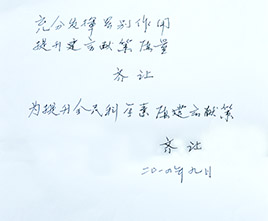 充分发挥界别作用
提升建言献策质量
齐让
为提升全民科学素质建言献策
齐让
二〇一〇年九月